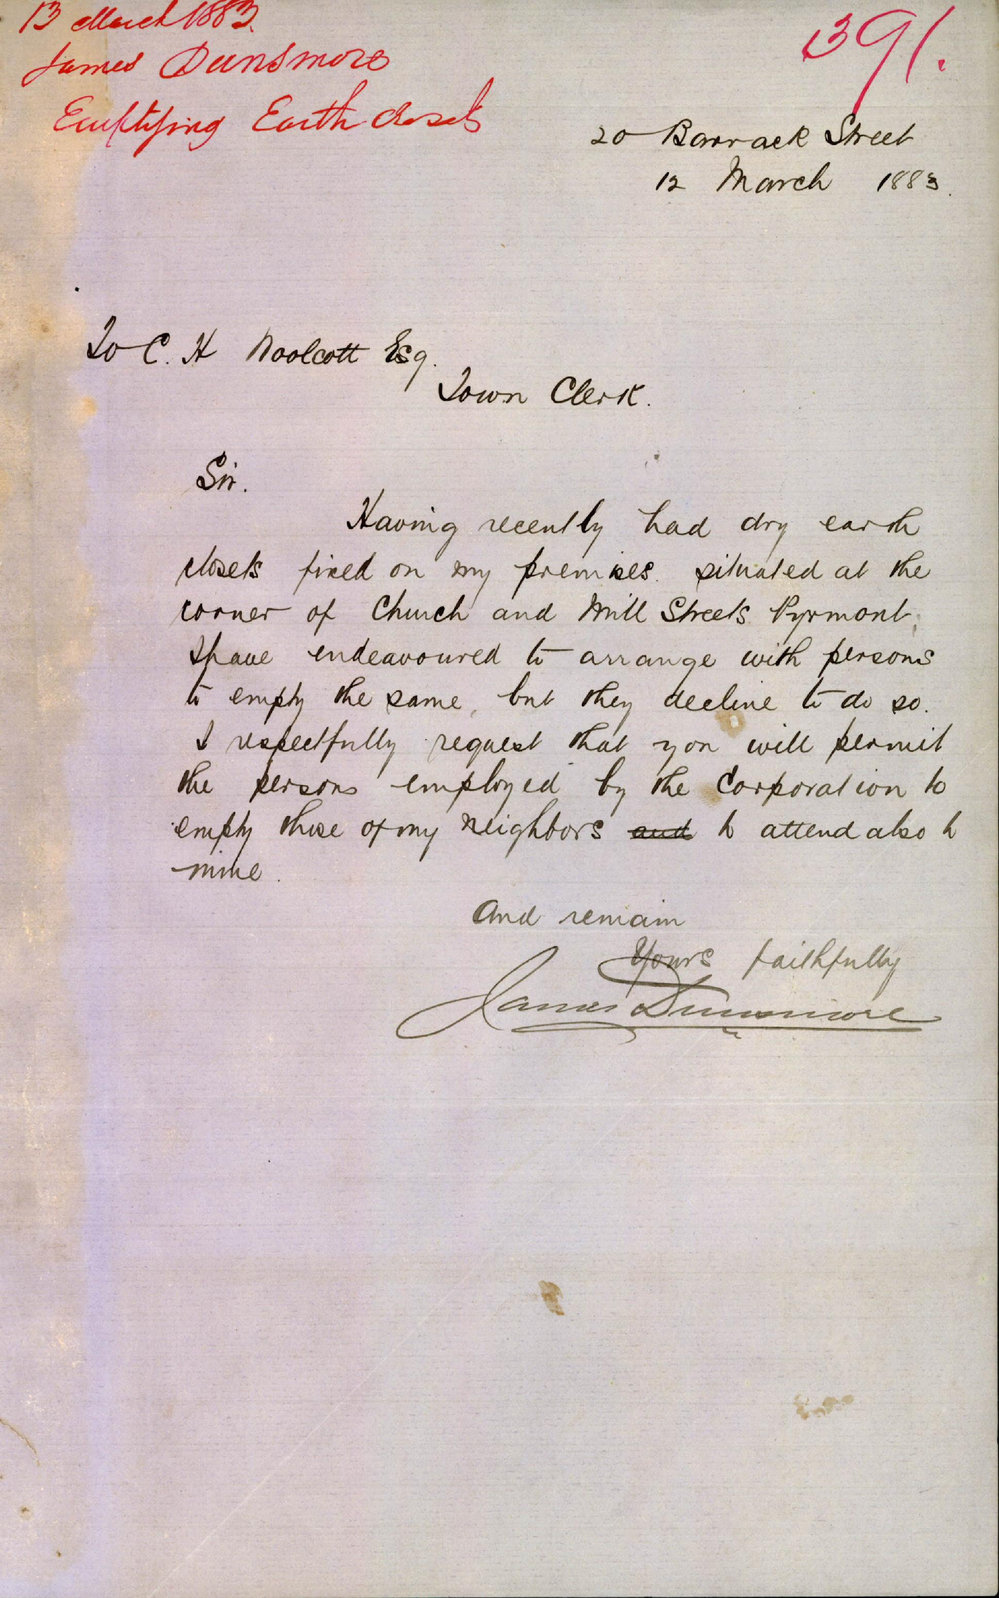 13 March 1883.
James Dunsmore
Emptying Earth closets
391.
20 Barrack Street
12 March 1883.
To C. H Woolcott Esq.
Town Clerk.
Sir.
Having recently had dry earth
closets fixed on my premises. situated at the
corner of Church and Mill Streets Pyrmont,
I have endeavoured to arrange with persons
to empty the same, but they decline to do so.
I respectfully request that you will permit
the persons employed by the Corporation to
empty those of my neighbors and to attend also to
mine.
And remain
Yours faithfully
James Dunsmore